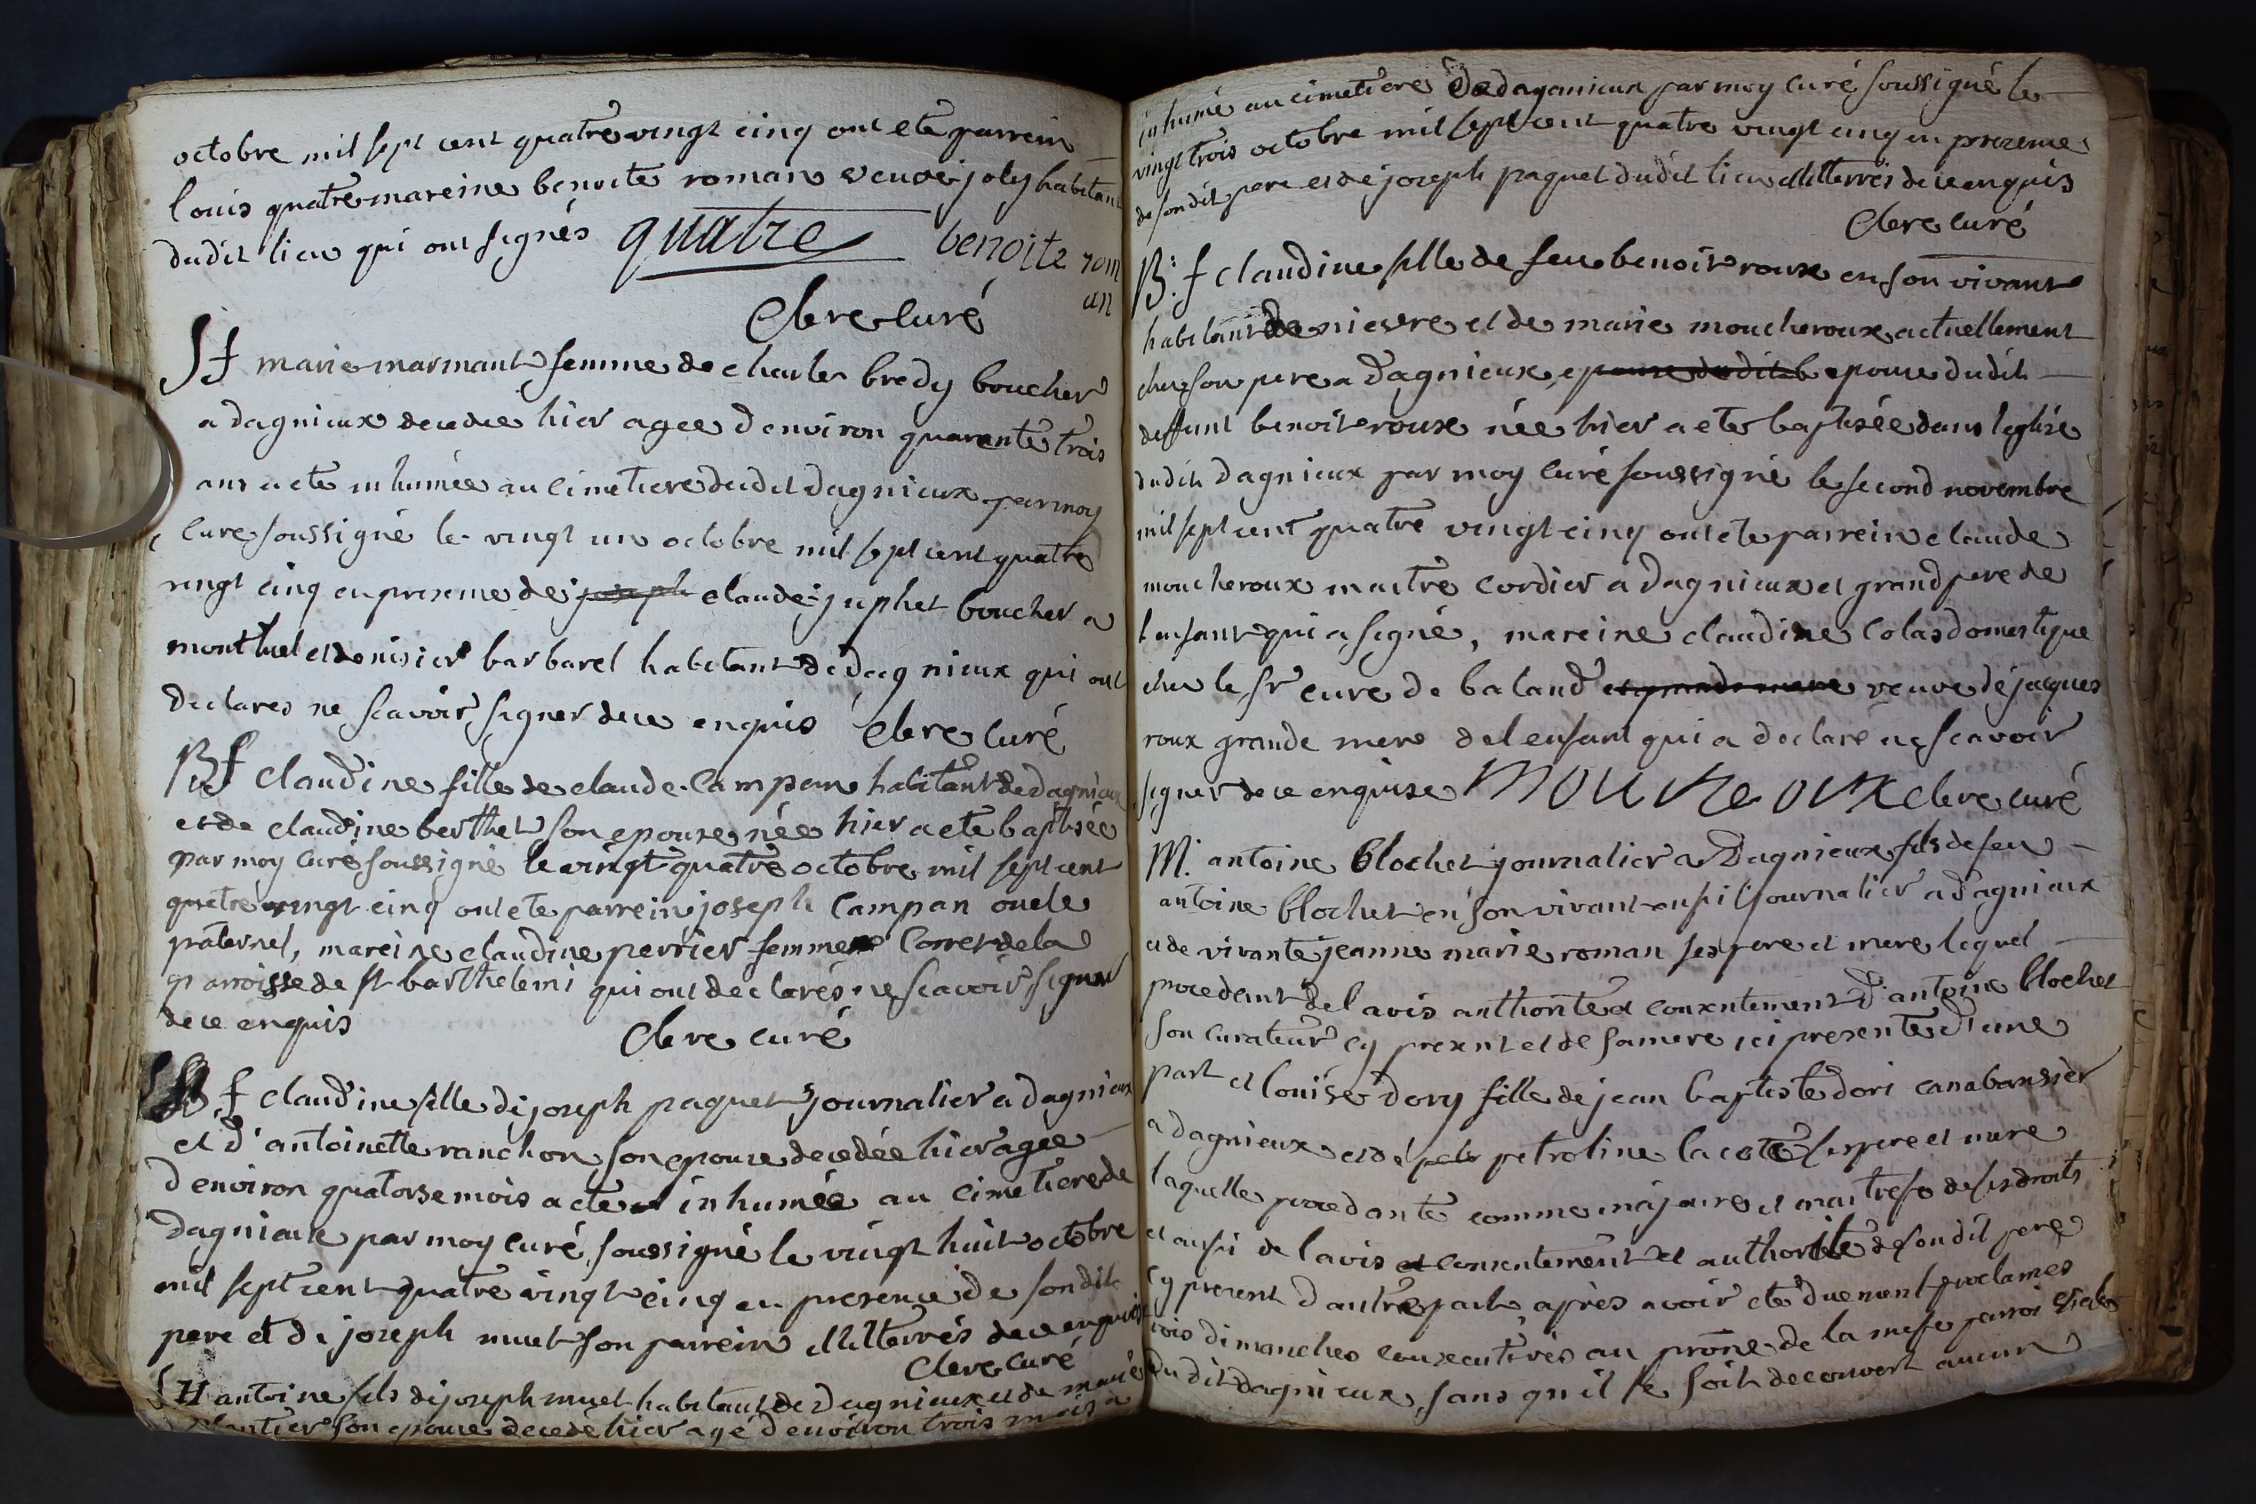 octobre mil sept cent quatre vingt cinq ont ete parrein
louis quatre mareine benoite roman veuve joly habitant
dudit lieu qui ont signés quatre benoite rom
an
Clere curé
Sf marie marmant femme de charles bredy boucher
a dagnieux decedee hier agee d environ quarente trois
ans a ete inhumée au cimetiere dudit dagnieux par moy
curé soussigné le vingt un octobre mil sept cent quatre
vingt cinq en presense de joseph claude juphet boucher a
montluel et de nisier barbarel habitant de dagnieux qui ont
declares ne scavoir signer de ce enquis Clere curé
Bf claudine fille de claude campan habitant de dagnieux
et de claudine berthet son epouse née hier a ete baptisée
par moy curé soussigné le vingt quatre octobre mil sept cent
quatre vingt cinq ont ete parrein joseph campan oncle
paternel, mareine claudine perrier femme Corret de la
parroisse de st barthelemi qui ont declarés ne scavoir signer
de ce enquis
Clere curé
f claudine fille de joseph paquet journalier a dagnieux
et d'antoinette ranchon son epouse decedée hier agee
d environ quatorse mois a ete inhumée au cimetiere de
dagnieux par moy curé soussigné le vingt huit octobre
mil sept cent quatre vingt cinq en presence de son dit
pere et de joseph muet son parrein illiterrés de ce enquis
Clere curé
H antoine fils de joseph muet habitant de dagnieux et de marie
plantier son epouse decedé hier agé d environ trois mois a
inhumé au cimetiere de dagnieux par moy curé soussigné le
vingt trois octobre mil sept cent quatre vingt cinq en presense
de son dit pere et de joseph paquet dudit lieu illiterrés de ce enquis
Clere curé
B. f claudine fille de feu benoit roux en son vivant
habitant de nievre et de marie moucheroux actuellement
chez son pere a dagnieux epouse dudit b epouse dudit
deffunt benoit roux née hier a ete baptisée dans leglise
dudit dagnieux par moy curé soussigné le second novembre
mil sept cent quatre vingt cinq ont ete parrein claude
moucheroux maitre cordier a dagnieux et grand pere de
l enfant qui a signé, mareine claudine colas domestique
chez le sr curé de baland et grande mere veuve de jacques
roux grande mere de l enfant qui a declaré ne scavoir
signer de ce enquise moucheroux Clere curé
M. antoine blochet journalier a dagnieux fils de feu
antoine blochet en son vivant aussi journalier a dagnieux
et de vivante jeanne marie roman ses pere et mere lequel
procedant de l avis authorité et consentement d'antoine blochet
son curateur cy present et de sa mere ici presente d'une
part et louise dory fille de jean baptiste dori canabassier
a dagnieux et de petroline lacote ses pere et mere
laquelle procedante comme majeure et maitresse de ses droits
et aussi de l avis et consentement et authorité de son dit pere
cy present d autre part, après avoir ete duement proclames
trois dimanches consecutives au prône de la messe parroissiale
du dit dagnieux, sans qu il se soit decouvert aucun